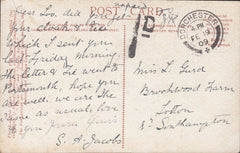 POST CARD
Dear Loo, did you get
your cloak & tie
which I sent you
last Friday morning.
The letter & tie went to
Portsmouth, Hope you
are well. we are the
same as usual, love
from Yours
S. A. Jacobs
1D
DORCHESTER
FE 19
09
Miss L. Gurd
Brookwood Farm
Totton
Nr Southampton